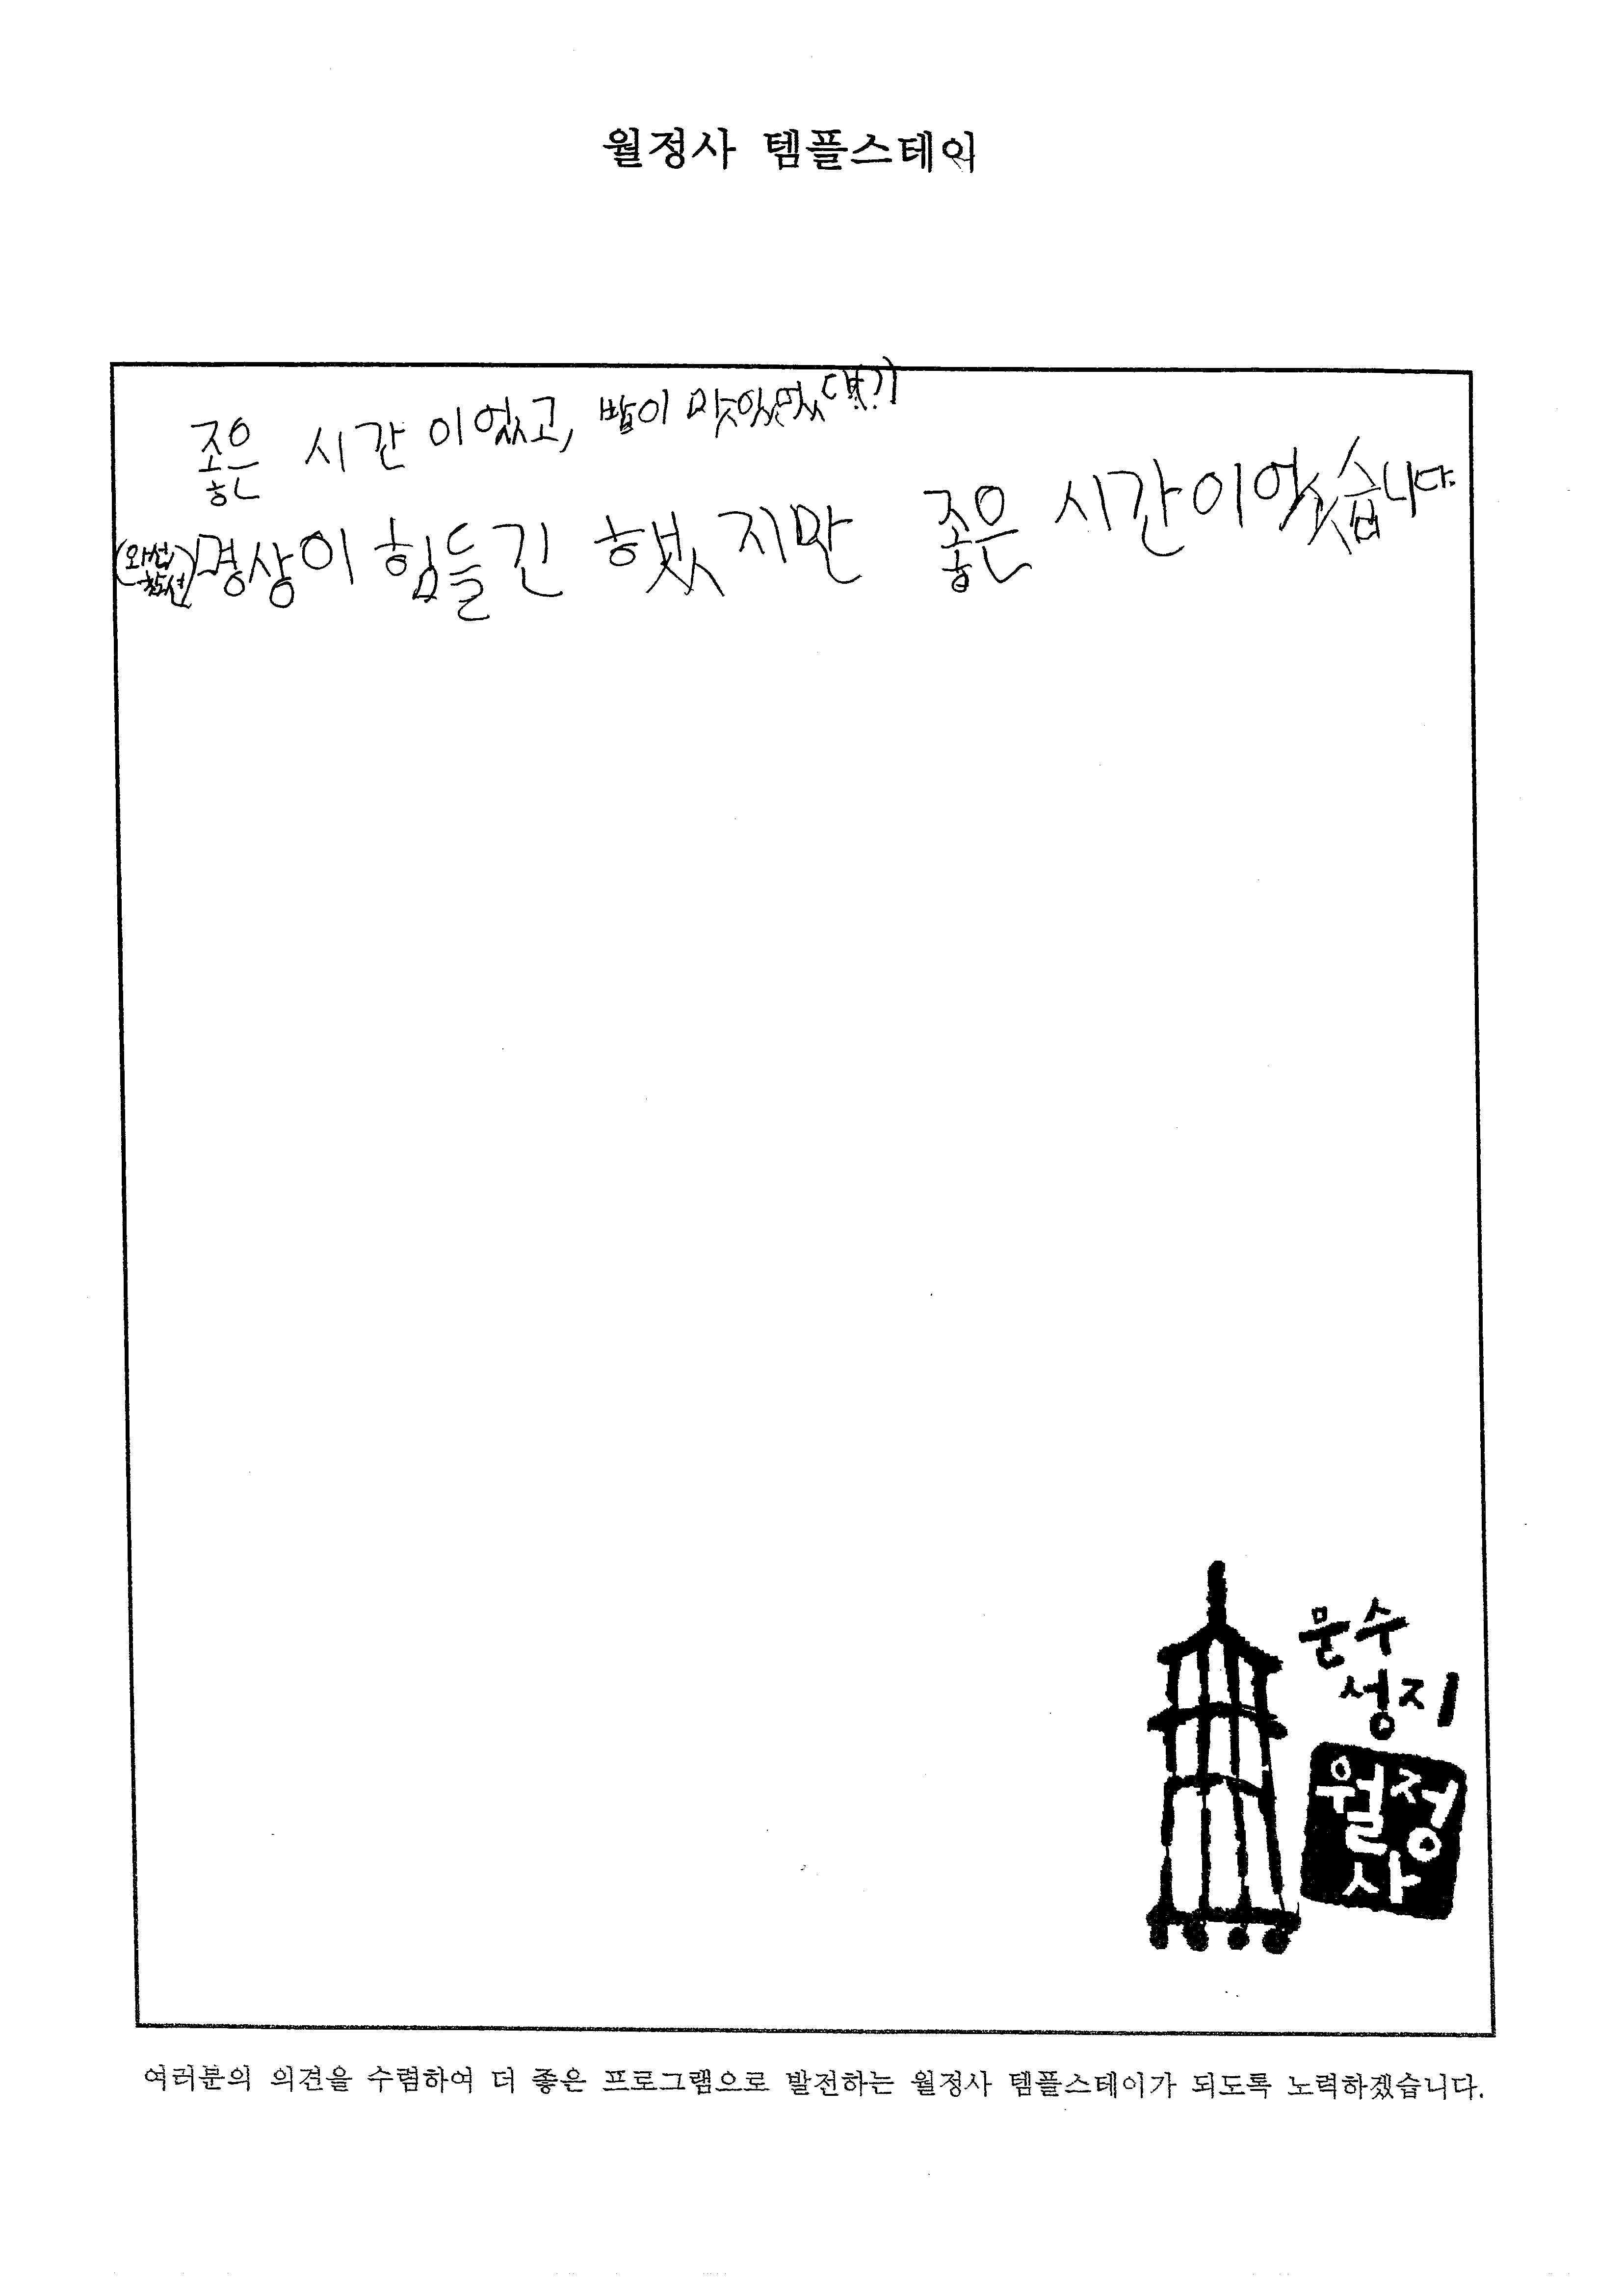 월정사 템플스테이
좋은 시간이었고, 밥이 맛있었
명상이 힘들긴 했지만 좋은 시간이었습니다.
문수
성지
월정
사
여러분의 의견을 수렴하여 더 좋은 프로그램으로 발전하는 월정사 템플스테이가 되도록 노력하겠습니다.